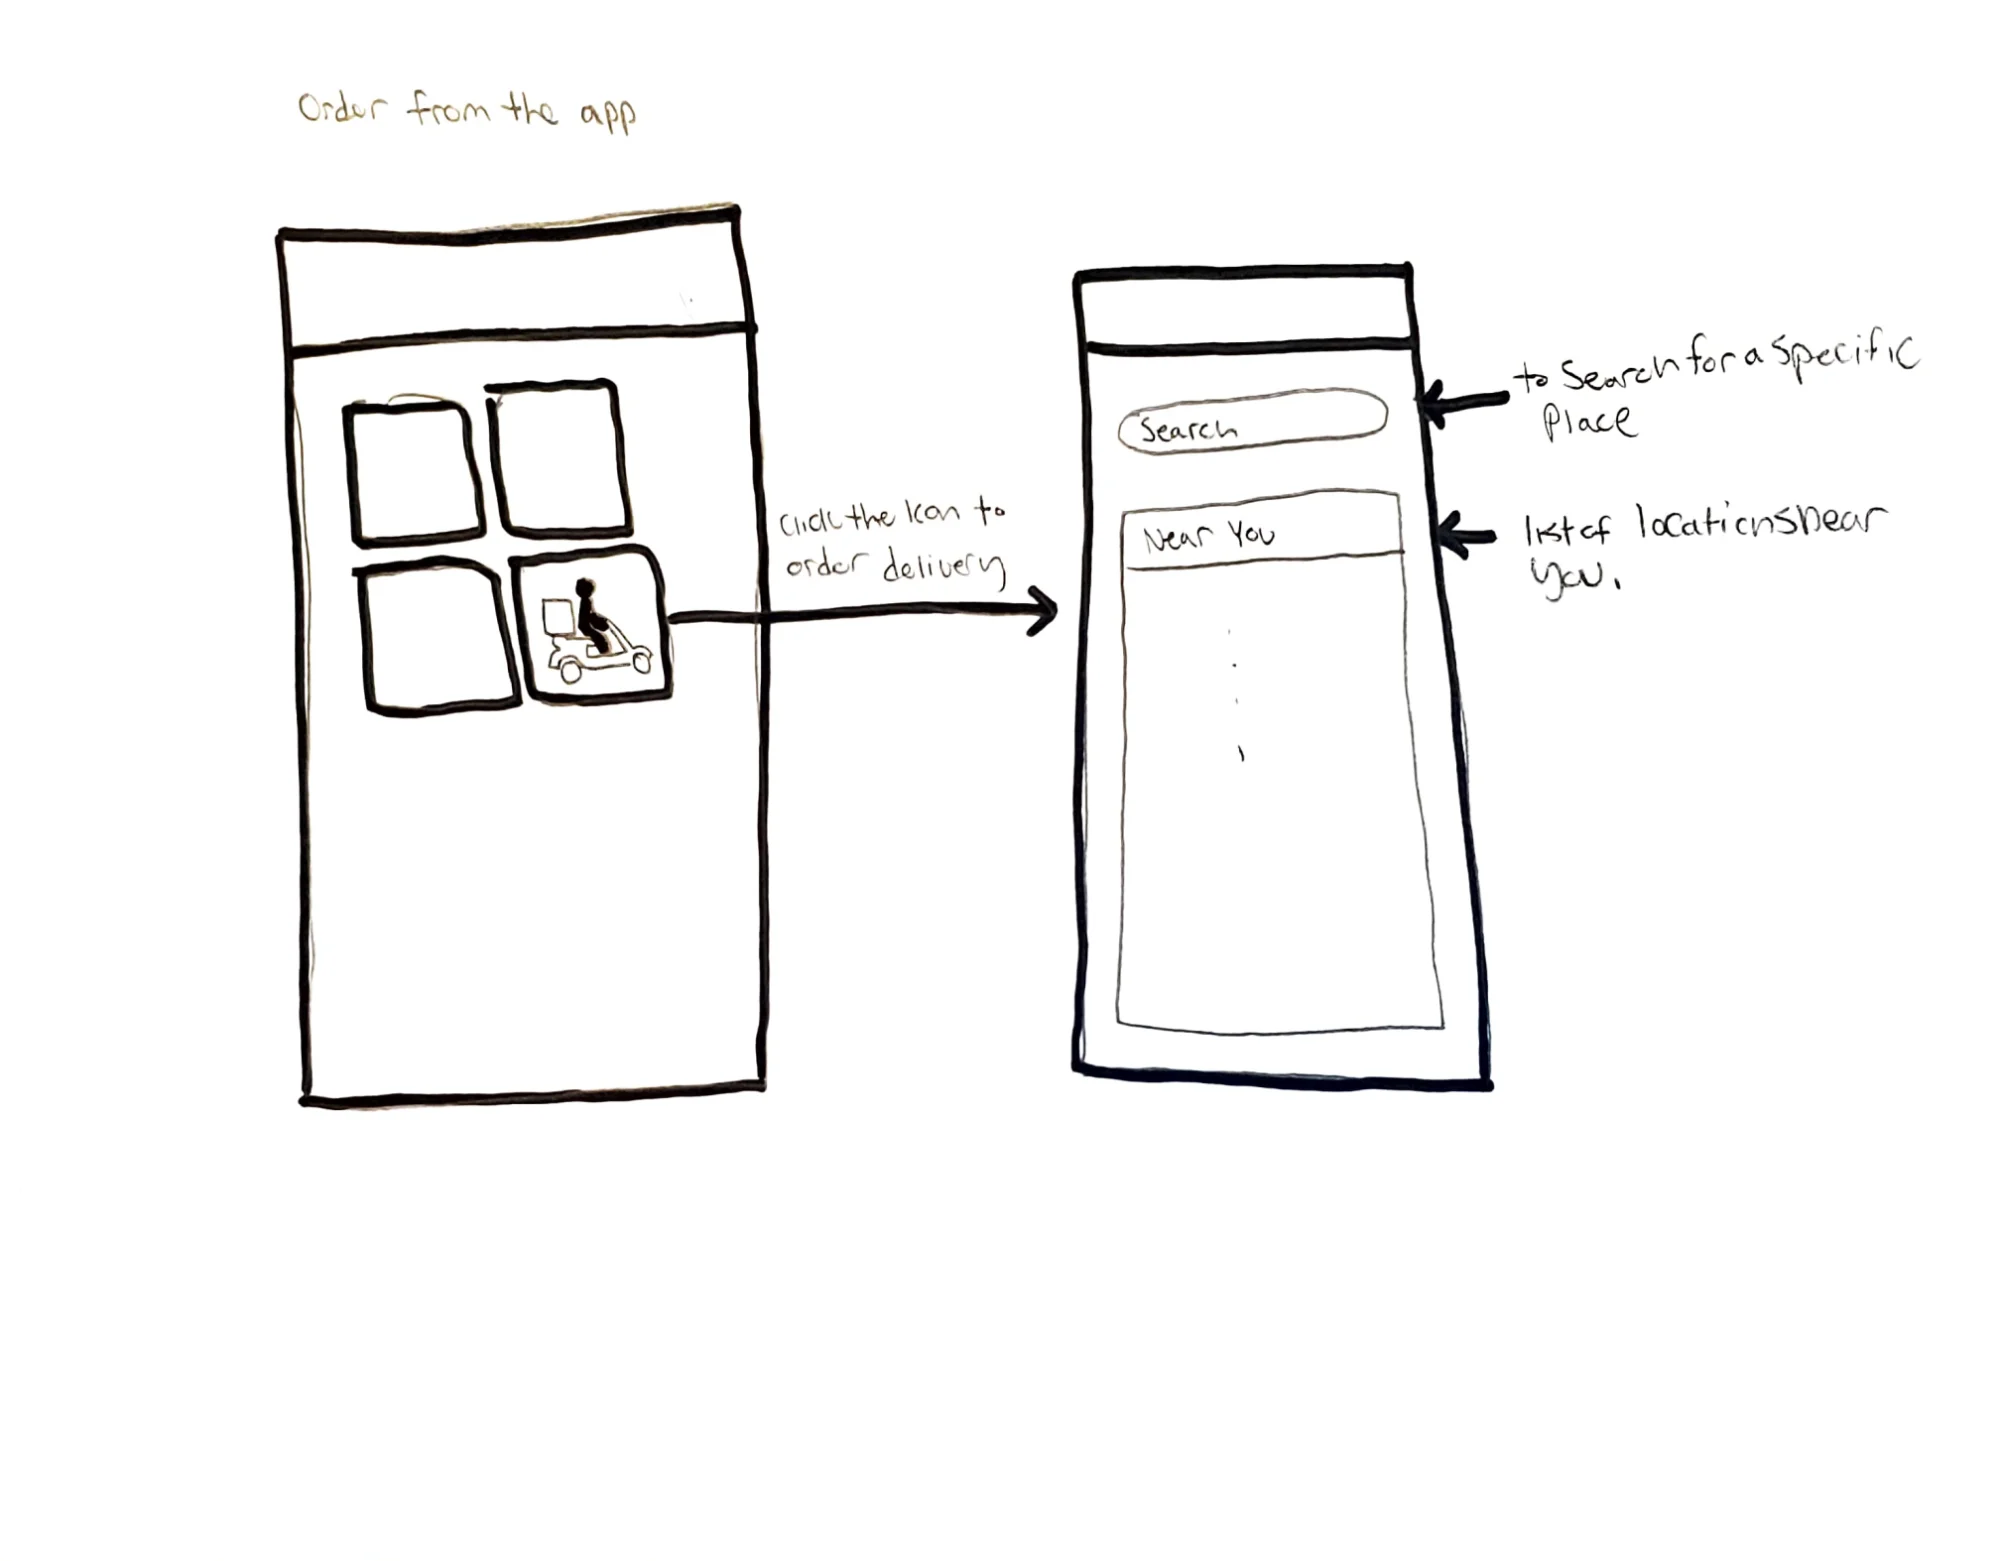 Order from the app
Click the Icon to
order delivery
Search
Near You
to Search for a Specific
Place
list of locations near
you.